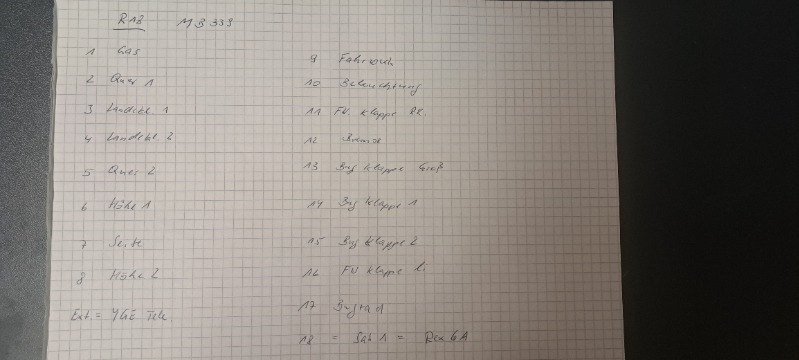 R18 MB 339
1 Gas
2 Quer 1
3 Landekl. 1
4 Landekl. 2
5 Quer 2
6 Höhe 1
7 Seite
8 Höhe 2
Ext. = Tele.
9 Fahrwerk
10 Beleuchtung
11 FW. Klappe Re.
12 Bremse
13 Bug Klappe Groß
14 Bug Klappe 1
15 Bug Klappe 2
16 FW Klappe Li.
17 Bugrad
18 = Sat 1 = Rex 6A